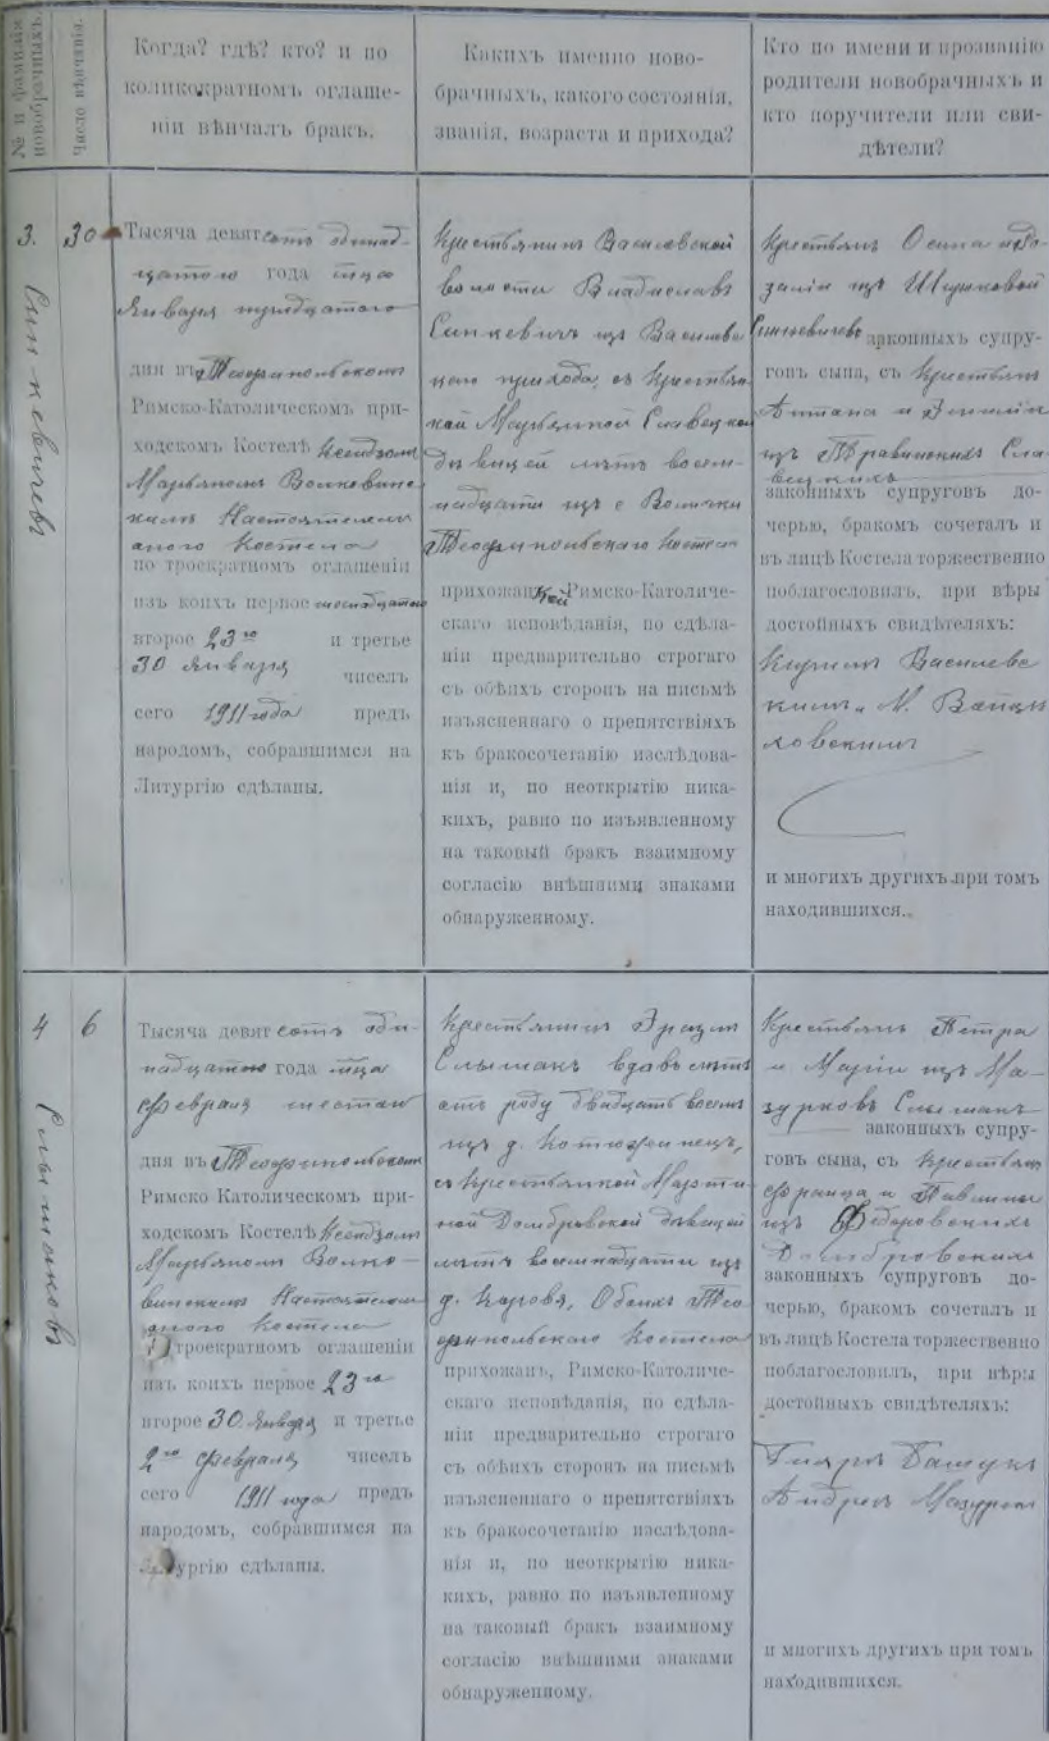 № и фамилія
новобрачныхъ.
Число вѣнчанія.
Когда? гдѣ? кто? и по
коликократномъ оглаше-
ніи вѣнчалъ бракъ.
Какихъ именно ново-
брачныхъ, какого состоянія,
званія, возраста и прихода?
Кто по имени и прозванію
родители новобрачныхъ и
кто поручители или сви-
дѣтели?
3.
Синкевичевъ
30
Тысяча девятсотъ одинад-
цатого года мца
Января тридцатого
дня въ Теофипольскомъ
Римско-Католическомъ при-
ходскомъ Костелѣ Ксендзомъ
Марьяномъ Волковинс-
кимъ Настоятелемъ
оного Костела
по троекратномъ оглашеніи
изъ коихъ первое шеснадцатого
второе 23го и третье
30 Января чиселъ
сего 1911 года предъ
народомъ, собравшимся на
Литургію сдѣланы.
Крестьянинъ Василевской
волости Владиславъ
Синкевичъ изъ
прихода, съ Крестьян-
кой Марьяной Славецкой
дѣвицей лѣтъ восем-
надцати изъ с Волички
Теофипольскаго Костела
прихожанкой Римско-Католиче-
скаго исповѣданія, по сдѣла-
ніи предварительно строгаго
съ обѣихъ сторонъ на письмѣ
изъясненнаго о препятствіяхъ
къ бракосочетанію изслѣдова-
нія и, по неоткрытію ника-
кихъ, равно по изъявленному
на таковый бракъ взаимному
согласію внѣшними знаками
обнаруженному.
Крестьянъ Осипа и Ро-
заліи изъ
Синкевичевъ законныхъ супру-
говъ сына, съ Крестьянъ
Антона и Эмиліи
изъ Правинскихъ Сла-
вецкихъ
законныхъ супруговъ до-
черью, бракомъ сочеталъ и
въ лицѣ Костела торжественно
поблагословилъ, при вѣры
достойныхъ свидѣтеляхъ:
Василевс-
кимъ М.
ховскимъ
и многихъ другихъ при томъ
находившихся.
4
Слымаковъ
6
Тысяча девятсотъ оди-
надцатого года мца
Февраля шестаго
дня въ Теофипольскомъ
Римско Католическомъ при-
ходскомъ Костелѣ Ксендзомъ
Марьяномъ Волко-
винскимъ Настоятелемъ
оного Костела
троекратномъ оглашеніи
изъ коихъ первое 23го
второе 30 Января и третье
2го Февраля чиселъ
сего 1911 года предъ
народомъ, собравшимся на
Литургію сдѣланы.
Крестьянинъ Эразмъ
Слымакъ вдовъ
отъ роду двадцать восемь
изъ д. Котюржинецъ,
съ Крестьянкой Марти-
ной Домбровской дѣвицей
лѣтъ восемнадцати изъ
д. Коровья, Обоихъ Тео-
фипольскаго Костела
прихожанъ, Римско-Католиче-
скаго исповѣданія, по сдѣла-
ніи предварительно строгаго
съ обѣихъ сторонъ на письмѣ
изъясненнаго о препятствіяхъ
къ бракосочетанію изслѣдова-
нія и, по неоткрытію ника-
кихъ, равно по изъявленному
на таковый бракъ взаимному
согласію внѣшними знаками
обнаруженному.
Крестьянъ Петра
и Маріи изъ Ма-
зурковъ Слымакъ
законныхъ супру-
говъ сына, съ Крестьянъ
Франца и Павлины
изъ Федоровскихъ
Домбровскихъ
законныхъ супруговъ до-
черью, бракомъ сочеталъ и
въ лицѣ Костела торжественно
поблагословилъ, при вѣры
достойныхъ свидѣтеляхъ:
и многихъ другихъ при томъ
находившихся.